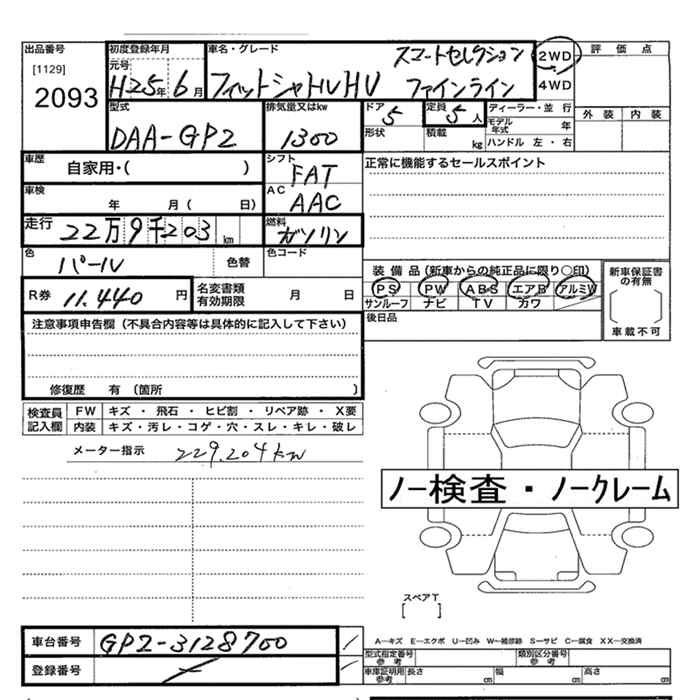 出品番号
[1129]
2093
初度登録年月
元号
H25年6月
車名・グレード
スマートセレクション
フィットシャトルHV ファインライン
2WD
4WD
評価点
外装 内装
型式
DAA-GP2
排気量又はkw
1300
ドア
5
形状
定員
5人
積載
kg
ディーラー・並行
モデル年式 年
ハンドル 左・右
車歴
自家用・( )
シフト
FAT
正常に機能するセールスポイント
車検
年 月( 日)
AC
AAC
走行
22万9千203km
燃料
ガソリン
色
パール
色替
色コード
装備品(新車からの純正品に限り○印)
PS PW ABS エアB アルミW
サンルーフ ナビ TV カワ
新車保証書の有無
車載不可
R券
11,440円
名変書類有効期限
月 日
後日品
注意事項申告欄(不具合内容等は具体的に記入して下さい)
修復歴 有 (箇所 )
検査員記入欄
FW キズ・飛石・ヒビ割・リペア跡・X要
内装 キズ・汚レ・コゲ・穴・スレ・キレ・破レ
メーター指示 229,204km
ノー検査・ノークレーム
スペアT
[ ]
車台番号
GP2-3128700
登録番号
A―キズ E―エクボ U―凹み W―補修跡 S―サビ C―腐食 XX―交換済
型式指定番号 参考
類別区分番号 参考
車庫証明用参考
長さ cm 幅 cm 高さ cm